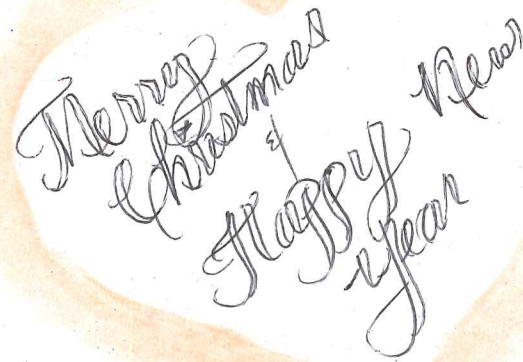 Merry
Christmas
&
Happy New
Year